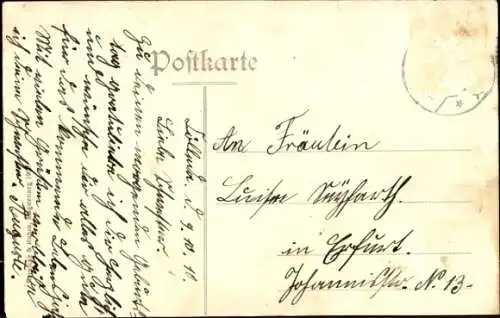 Postkarte
d. 9. 10. 11.
Liebe Schwester.
Zu deinem morgenden Geburts-
tag gratuliere ich dir herzlich
und wünsche dir alles gute
für das kommende Lebensjahr
Mit vielen Grüßen verbleibe
ich deine Schwester Auguste.
An Fräulein
Luise Seyfarth.
in Erfurt.
Johannisstr. No 13.